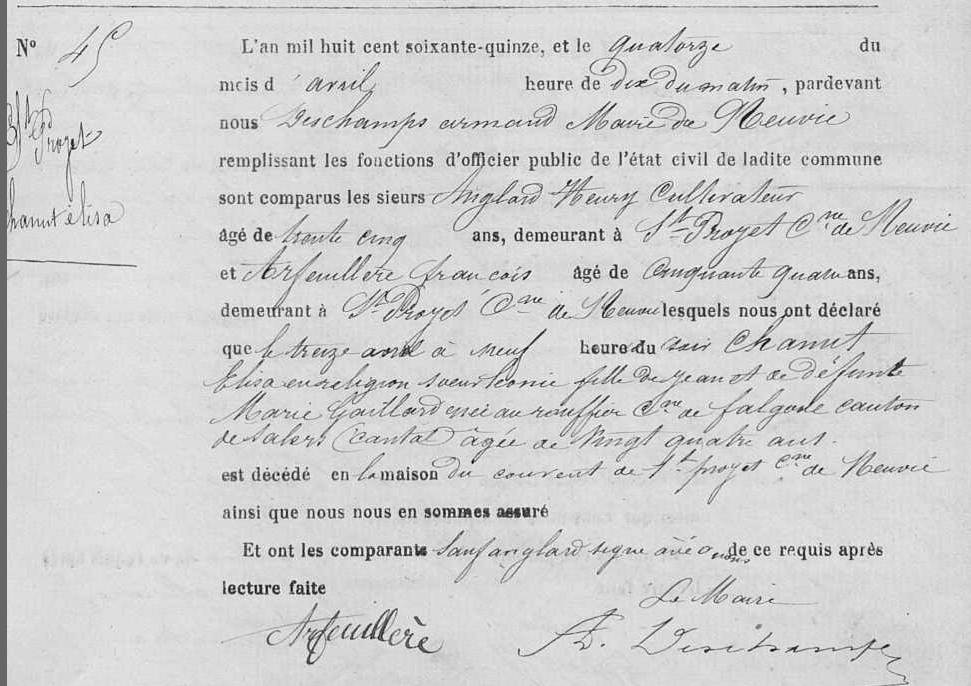 N° 45
St Projet
Chanut élisa
L'an mil huit cent soixante-quinze, et le quatorze du
mois d'avril heure de dix du matin, pardevant
nous Deschamps armand Maire de Neuvic
remplissant les fonctions d'officier public de l'état civil de ladite commune
sont comparus les sieurs Anglard Henry Cultivateur
âgé de trente cinq ans, demeurant à St Projet Cne de Neuvic
et Arfeuillère françois âgé de Cinquante quatre ans,
demeurant à St Projet Cne de Neuvic lesquels nous ont déclaré
que le treize avril à neuf heure du soir Chanut
Elisa en religion soeur Léonie fille de jean et de défunte
Marie Gaillard née au Cne de falgoux canton
de Salers (Cantal) âgée de vingt quatre ans.
est décédé en la maison du couvent de St projet Cne de Neuvic
ainsi que nous nous en sommes assuré
Et ont les comparants sauf anglard signé avec nous de ce requis après
lecture faite
Le Maire
Arfeuillère
A. Deschamps